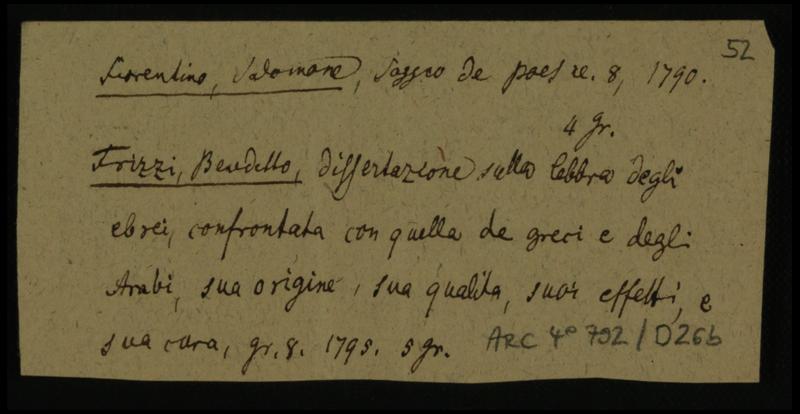 52
Fiorentino, Salomone, Saggio de poesie. 8, 1790.
4 gr.
Frizzi, Benedetto, dissertazione sulla lebbra degli
ebrei, confrontata con quella de greci e degli
Arabi, sua origine, sua qualita, suoi effetti, e
sua cura, gr. 8. 1795. 5 gr. ARC 4° 792 / D26b